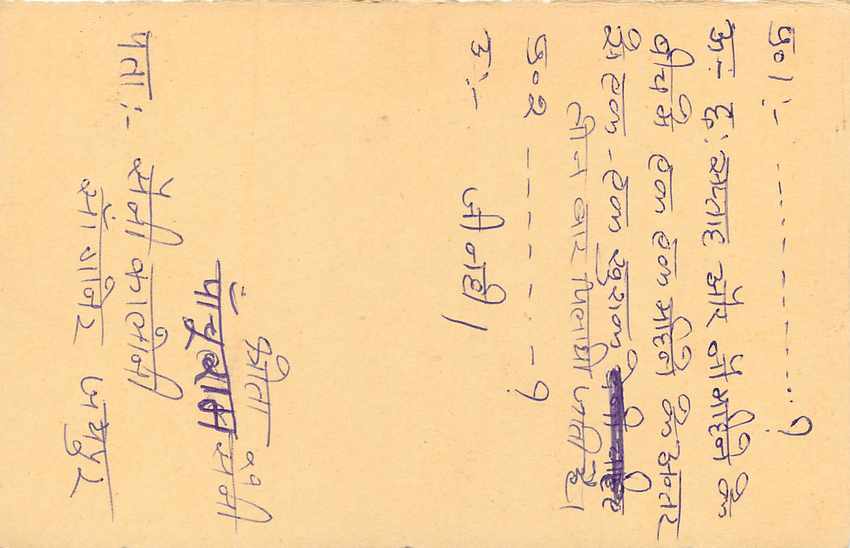 प्र॰1:- ------------?
उ:- छः सप्ताह और नौ महिने के
बीच में एक एक महिने के अन्तर
से एक-एक खुराक
तीन बार पिलायी जाती है।
प्र॰2 -------?
उ:- जी नहीं।
श्रोता
पांचुराम सैनी
पता:- सैनी कालोनी
सांगानेर जयपुर